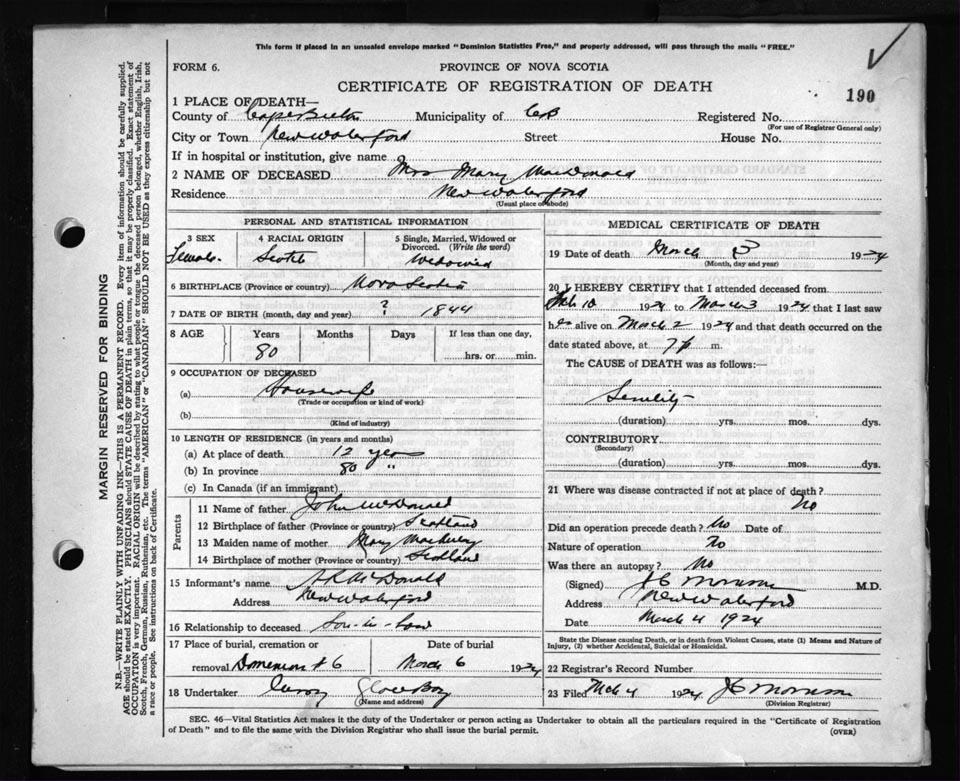 This form if placed in an unsealed envelope marked "Dominion Statistics Free," and properly addressed, will pass through the mails "FREE."
FORM 6. PROVINCE OF NOVA SCOTIA
CERTIFICATE OF REGISTRATION OF DEATH
190
1 PLACE OF DEATH—
County of Cape Breton Municipality of CB Registered No.
(For use of Registrar General only)
City or Town New Waterford Street House No.
If in hospital or institution, give name
2 NAME OF DECEASED Mrs Mary MacDonald
Residence New Waterford
(Usual place of abode)
PERSONAL AND STATISTICAL INFORMATION
3 SEX 4 RACIAL ORIGIN 5 Single, Married, Widowed or Divorced. (Write the word)
Female Scotch Widowed
6 BIRTHPLACE (Province or country) Nova Scotia
7 DATE OF BIRTH (month, day and year) ? 1844
8 AGE Years Months Days If less than one day,
80 hrs. or min.
9 OCCUPATION OF DECEASED
(a) Housewife
(Trade or occupation or kind of work)
(b)
(Kind of industry)
10 LENGTH OF RESIDENCE (in years and months)
(a) At place of death 12 years
(b) In province 80 "
(c) In Canada (if an immigrant)
Parents
11 Name of father John McDonald
12 Birthplace of father (Province or country) Scotland
13 Maiden name of mother Mary
14 Birthplace of mother (Province or country) Scotland
15 Informant's name McDonald
Address New Waterford
16 Relationship to deceased Son-in-law
17 Place of burial, cremation or removal Dominion # 6 DATE OF BURIAL March 6 1924
18 Undertaker Curry Glace Bay
(Name and address)
MEDICAL CERTIFICATE OF DEATH
19 Date of death March 3 1924
(Month, day and year)
20 I HEREBY CERTIFY that I attended deceased from
Feb 10 1924 to March 3 1924 that I last saw
her alive on March 2 1924 and that death occurred on
date stated above, at 7 p m.
The CAUSE of DEATH was as follows:—
Senility
(duration) yrs. mos. dys.
CONTRIBUTORY
(Secondary)
(duration) yrs. mos. dys.
21 Where was disease contracted if not at place of death?
No
Did an operation precede death? No Date of
Nature of operation No
Was there an autopsy? No
(Signed) M.D.
Address New Waterford
Date March 4 1924
State the Disease causing Death, or in death from Violent Causes, state (1) Means and Nature of
Injury, (2) whether Accidental, Suicidal or Homicidal.
22 Registrar's Record Number
23 Filed Mch 4 1924
(Division Registrar)
SEC. 46—Vital Statistics Act makes it the duty of the Undertaker or person acting as Undertaker to obtain all the particulars required in the "Certificate of Registration
of Death" and to file the same with the Division Registrar who shall issue the burial permit. (OVER)
MARGIN RESERVED FOR BINDING
N.B.—WRITE PLAINLY WITH UNFADING INK—THIS IS A PERMANENT RECORD. Every item of information should be carefully supplied.
AGE should be stated EXACTLY. PHYSICIANS should STATE CAUSE OF DEATH in plain terms, so that it may be properly classified. Exact statement of
OCCUPATION is very important. RACIAL ORIGIN will be described by stating to what people or tongue the deceased person belonged, whether English, Irish,
Scotch, French, German, Russian, Ruthenian, etc. The terms "AMERICAN" or "CANADIAN" SHOULD NOT BE USED as they express citizenship but not
a race or people. See instructions on back of Certificate.